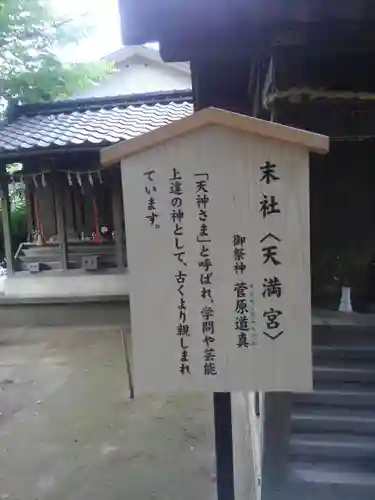 末社〈天満宮〉
御祭神 菅原道真
「天神さま」と呼ばれ、学問や芸能
上達の神として、古くより親しまれ
ています。